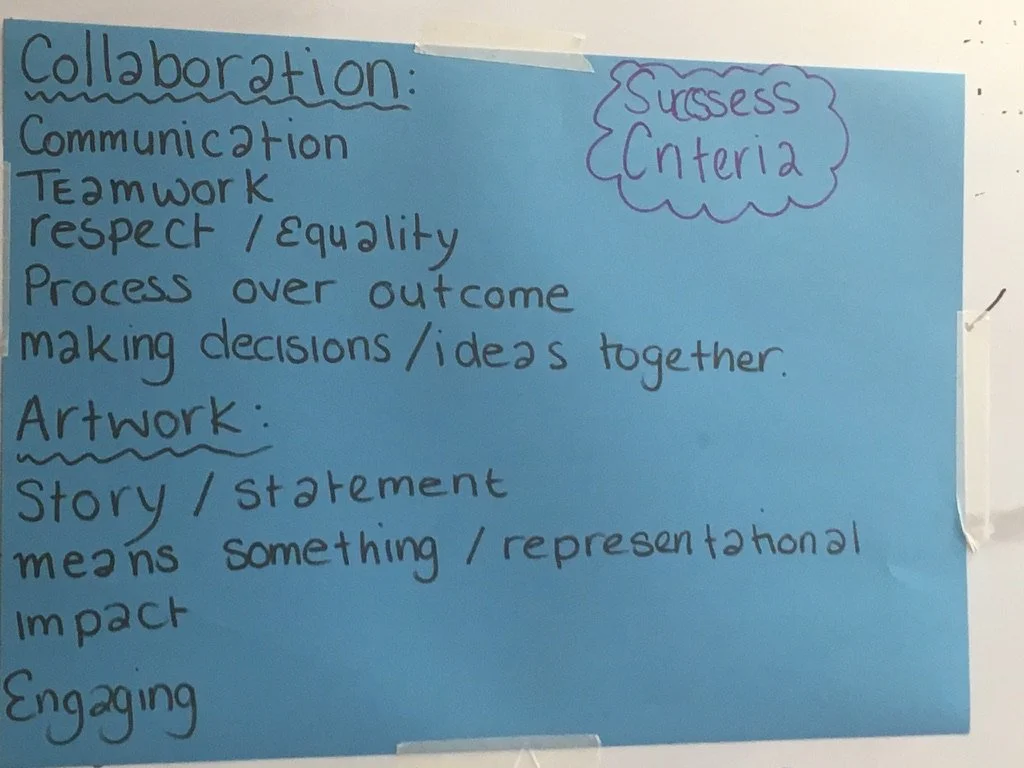 Collaboration:
Communication
Teamwork
respect / Equality
Process over outcome
making decisions / ideas together.
Artwork:
Story / statement
means something / representational
impact
Engaging
Sucssess
Criteria